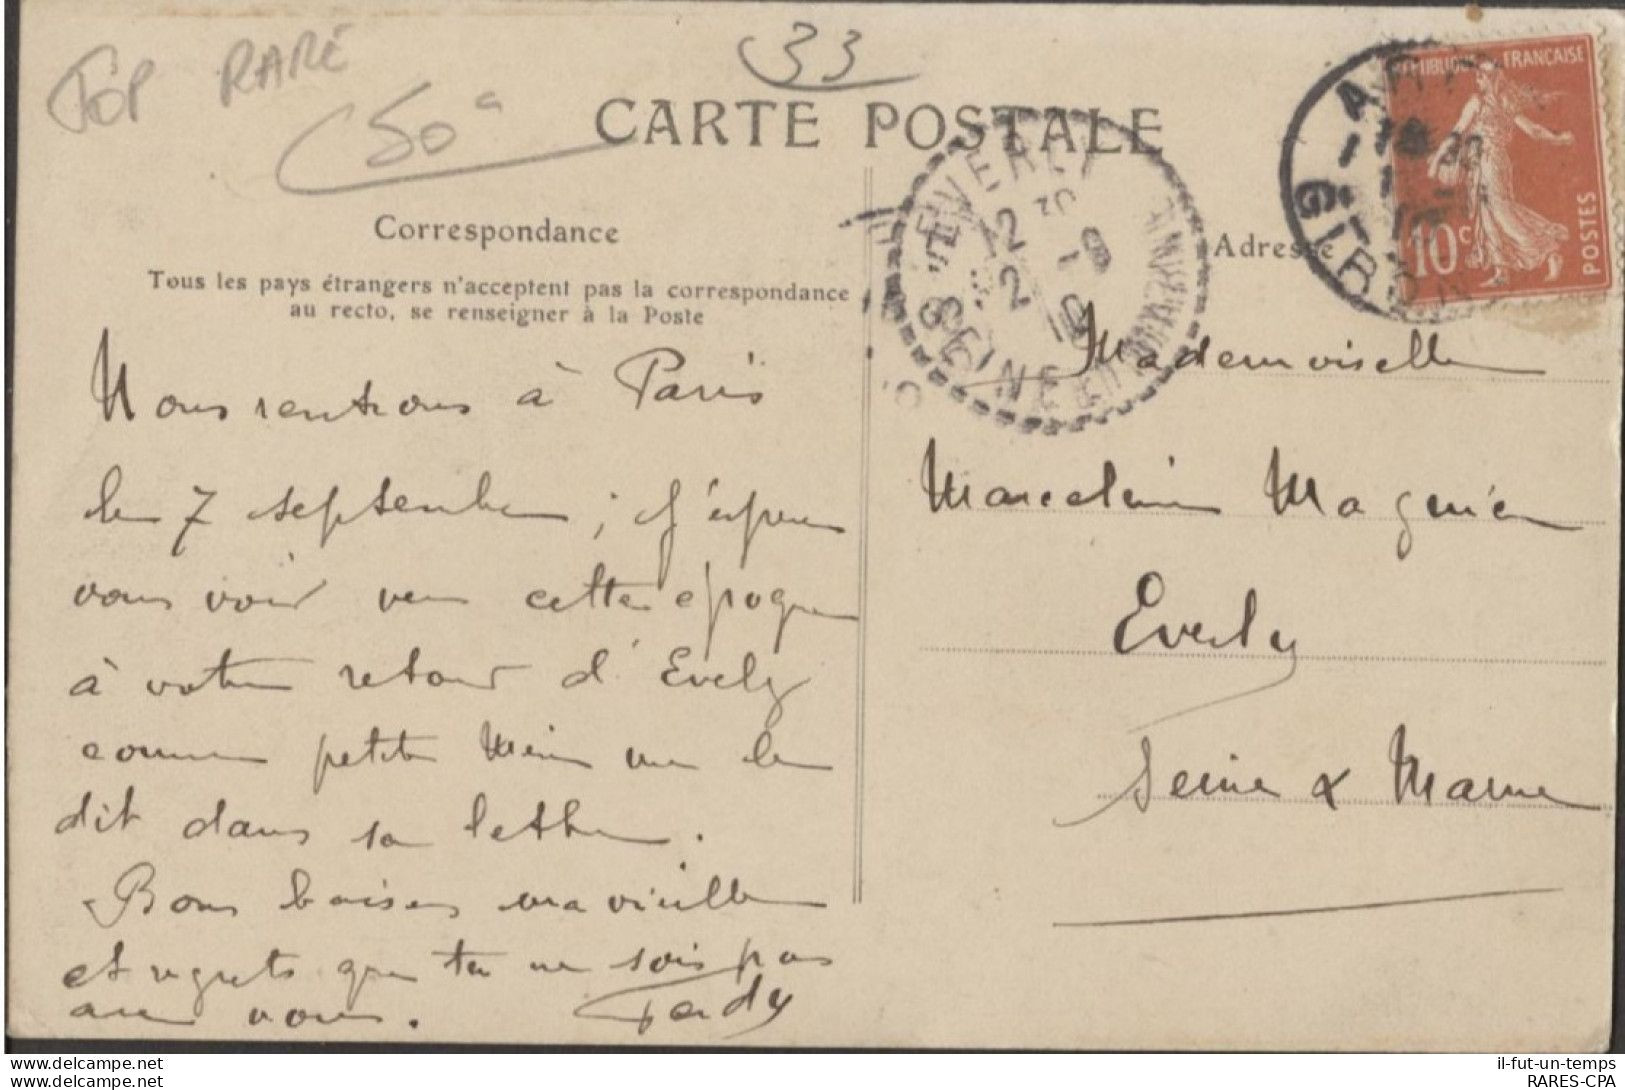 TOP RARE
50€
33
CARTE POSTALE
Correspondance
Tous les pays étrangers n'acceptent pas la correspondance
au recto, se renseigner à la Poste
Nous rentrons à Paris
le 7 septembre ; j'espère
vous voir vers cette époque
à votre retour d'Everly
comme petite Mimi me le
dit dans sa lettre.
Bons baisers ma vieille
et regrets que tu ne sois pas
avec nous.
Adresse
Mademoiselle
Marceline Magnien
Everly
Seine & Marne
RÉPUBLIQUE FRANÇAISE
10c
POSTES
EVERLY
SEINE ET
www.delcampe.net
www.delcampe.net
il-fut-un-temps
RARES-CPA